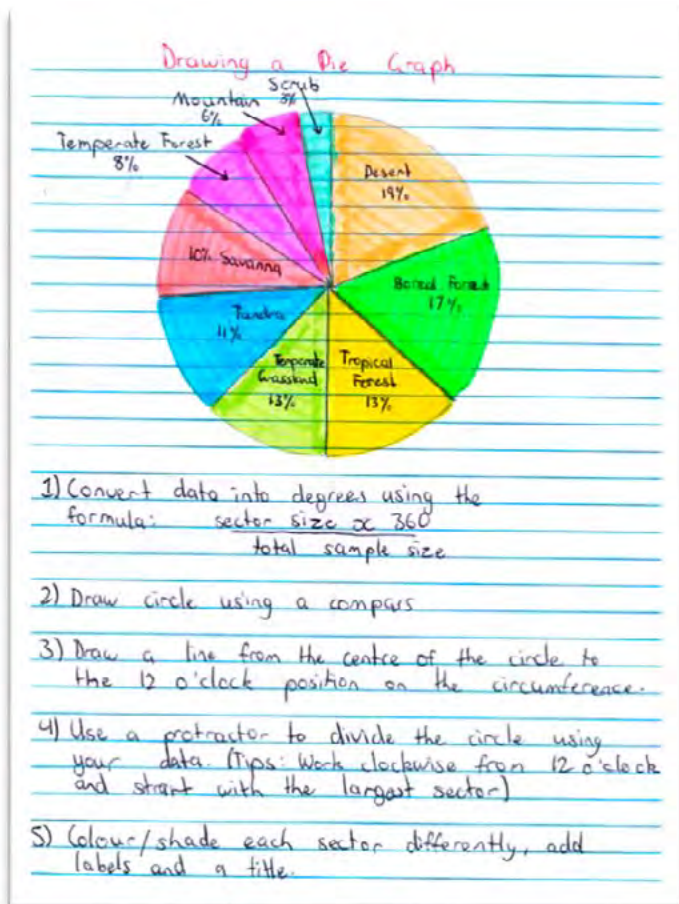 Drawing a Pie Graph
Scrub
3%
Mountain
6%
Temperate Forest
8%
Desert
19%
10% Savanna
Boreal Forest
17%
Tundra
11%
Temperate
Grassland
13%
Tropical
Forest
13%
1) Convert data into degrees using the
formula: sector size x 360
total sample size
2) Draw circle using a compass
3) Draw a line from the centre of the circle to
the 12 o'clock position on the circumference.
4) Use a protractor to divide the circle using
your data. (Tips: Work clockwise from 12 o'clock
and strart with the largest sector)
5) Colour/shade each sector differently, add
labels and a title.